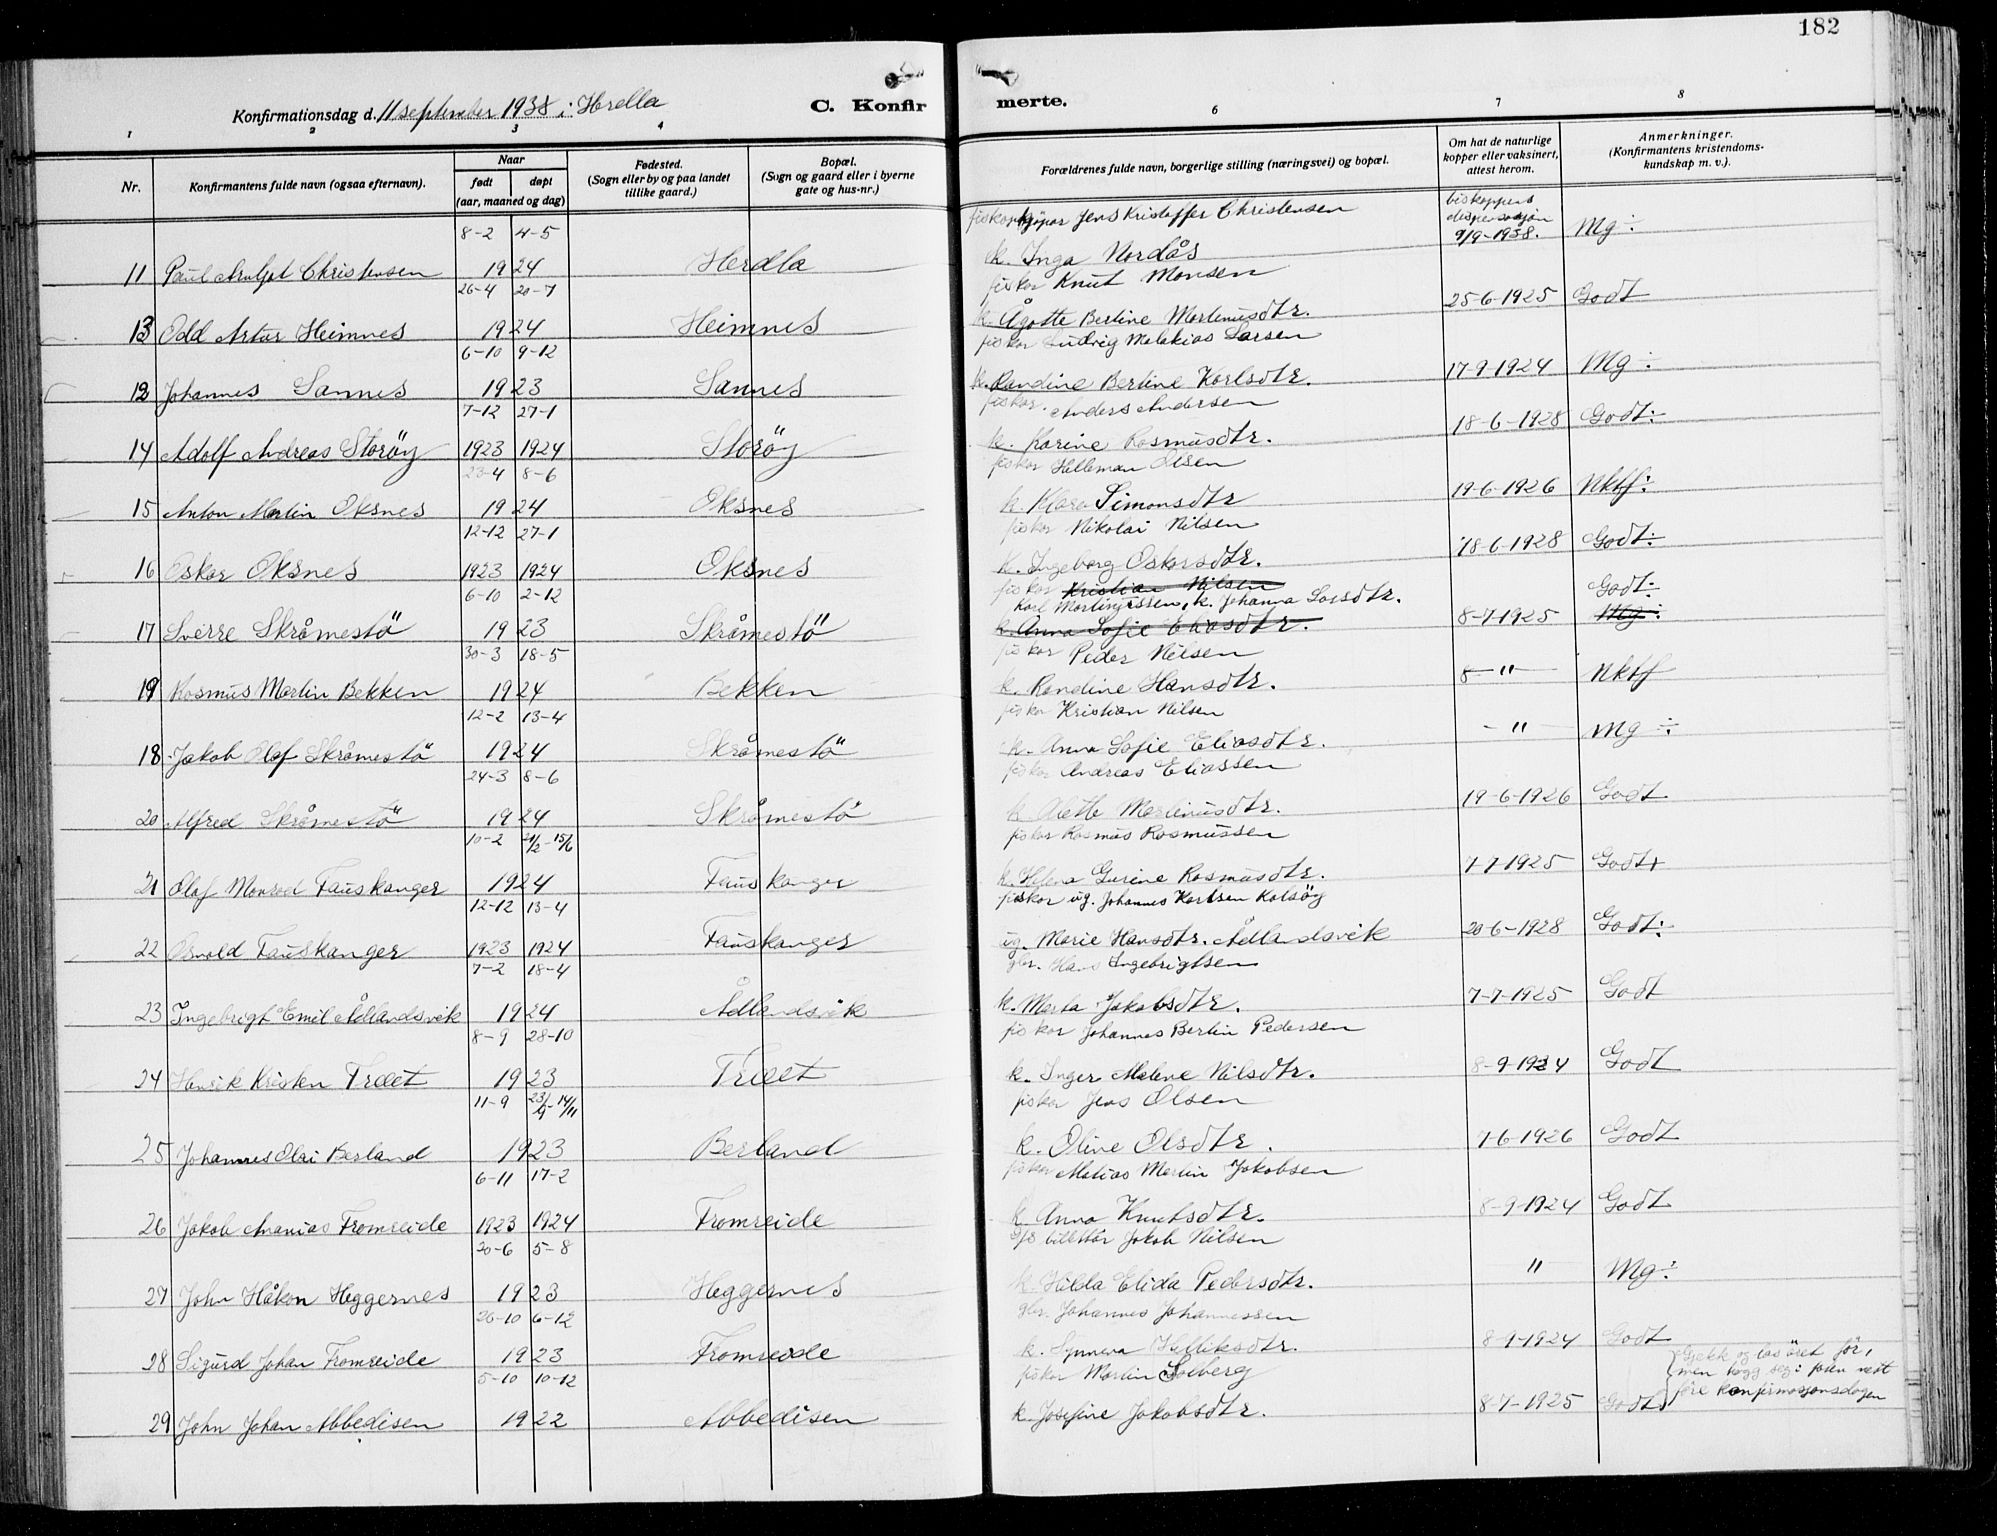 182
Konfirmationsdag d. 11 september 1938 i Herdla
C. Konfirmerte.
1 2 3 4 6 7 8
Nr.
Konfirmantens fulde navn (ogsaa efternavn).
Naar
født døpt
(aar, maaned og dag)
Fødested.
(Sogn eller by og paa landet
tillike gaard.)
Bopæl.
(Sogn og gaard eller i byerne
gate og hus-nr.)
Forældrenes fulde navn, borgerlige stilling (næringsvei) og bopæl.
Om hat de naturlige
kopper eller vaksinert,
attest herom.
Anmerkninger.
(Konfirmantens kristendoms-
kundskap m. v.).
8-2 4-5 Jens Kristoffer Christensen biskoppens
11 Paul Arnljot Christensen 1924 Herdla k. Inga Nordås 9/9-1938. Mg ÷
26-4 20-7 fiskar Knut Monsen
13 Odd Artur Heimnes 1924 Heimnes k. Ågotte Bertine Martinusdtr. 25-6-1925 Godt
6-10 9-12 fiskar Ludvig Malakias Larsen
12 Johannes Sannes 1923 Sannes k. Randine Bertine Karlsdtr. 17-9-1924 Mg ÷
7-12 27-1 fiskar. Anders Andersen
14 Adolf Andreas Storöy 1923 1924 Storöy k. Karine Rasmusdtr. 18-6-1928 Godt ÷
23-4 8-6 fiskar Helleman Olsen
15 Anton Martin Oksnes 1924 Oksnes k. Klara Simonsdtr 19-6-1926 Nktf ÷
12-12 27-1 fiskar Nikolai Nilsen
16 Oskar Oksnes 1923 1924 Oksnes k. Ingeborg Oskarsdtr. 18-6-1928 Godt ÷
6-10 2-12 fiskar Kristian Nilsen
Karl Martinussen, k. Johanna Larsdtr. Godt ÷
17 Sverre Skråmestö 1923 Skråmestö k. Anna Sofie Eliasdtr. 8-7-1925 Mg ÷
30-3 18-5 fiskar Peder Nilsen
19 Rasmus Martin Bekken 1924 Bekken k. Randine Hansdtr. 8 - " - Nktf
12-2 13-4 fiskar Kristian Nilsen
18 Jakob Olaf Skråmestö 1924 Skråmestö k. Anna Sofie Eliasdtr. - " - Mg ÷
24-3 8-6 fiskar Andreas Eliassen
20 Alfred Skråmestö 1924 Skråmestö k. Alette Martinusdtr. 19-6-1926 Godt
10-2 24/2-15/6 fiskar Rasmus Rasmussen
21 Olaf Monrad Fauskanger 1924 Fauskanger k. Helena Gurine Rasmusdtr. 7-7-1925 Godt+
12-12 13-4 fiskar ug. Johannes Karlsen Kalsöy
22 Osvald Fauskanger 1923 1924 Fauskanger ug. Marie Hansdtr. Ådlandsvik 20-6-1928 Godt ÷
7-2 18-4 gbr. Hans Ingebrigtsen
23 Ingebrigt Emil Ådlandsvik 1924 Ådlandsvik k. Marta Jakobsdtr. 7-7-1925 Godt
8-9 28-10 fiskar Johannes Bertin Pedersen
24 Henrik Kristen Træet 1923 Træet k. Inger Malene Nilsdtr. 8-9-1924 Godt
11-9 23/9-14/11 fiskar Jens Olsen
25 Johannes Olai Berland 1923 Berland k. Oline Olsdtr. 7-6-1926 Godt
6-11 17-2 fiskar Matias Martin Jakobsen
26 Jakob Ananias Fromreide 1923 1924 Fromreide k. Anna Knutsdtr. 8-9-1924 Godt
20-6 5-8 billettör Jakob Nilsen
27 John Håkon Heggernes 1923 Heggernes k. Hilda Elida Pedersdtr. " Mg ÷
26-10 6-12 gbr. Johannes Johannessen
28 Sigurd Johan Fromreide 1923 Fromreide k. Synneva 8-9-1924 Godt
5-10 10-12 fiskar Martin Solberg
Gjekk og las året för,
men
före konfirmasjonsdagen
29 John Johan Abbedisen 1922 Abbedisen k. Josefine Jakobsdtr. 8-7-1925 Godt